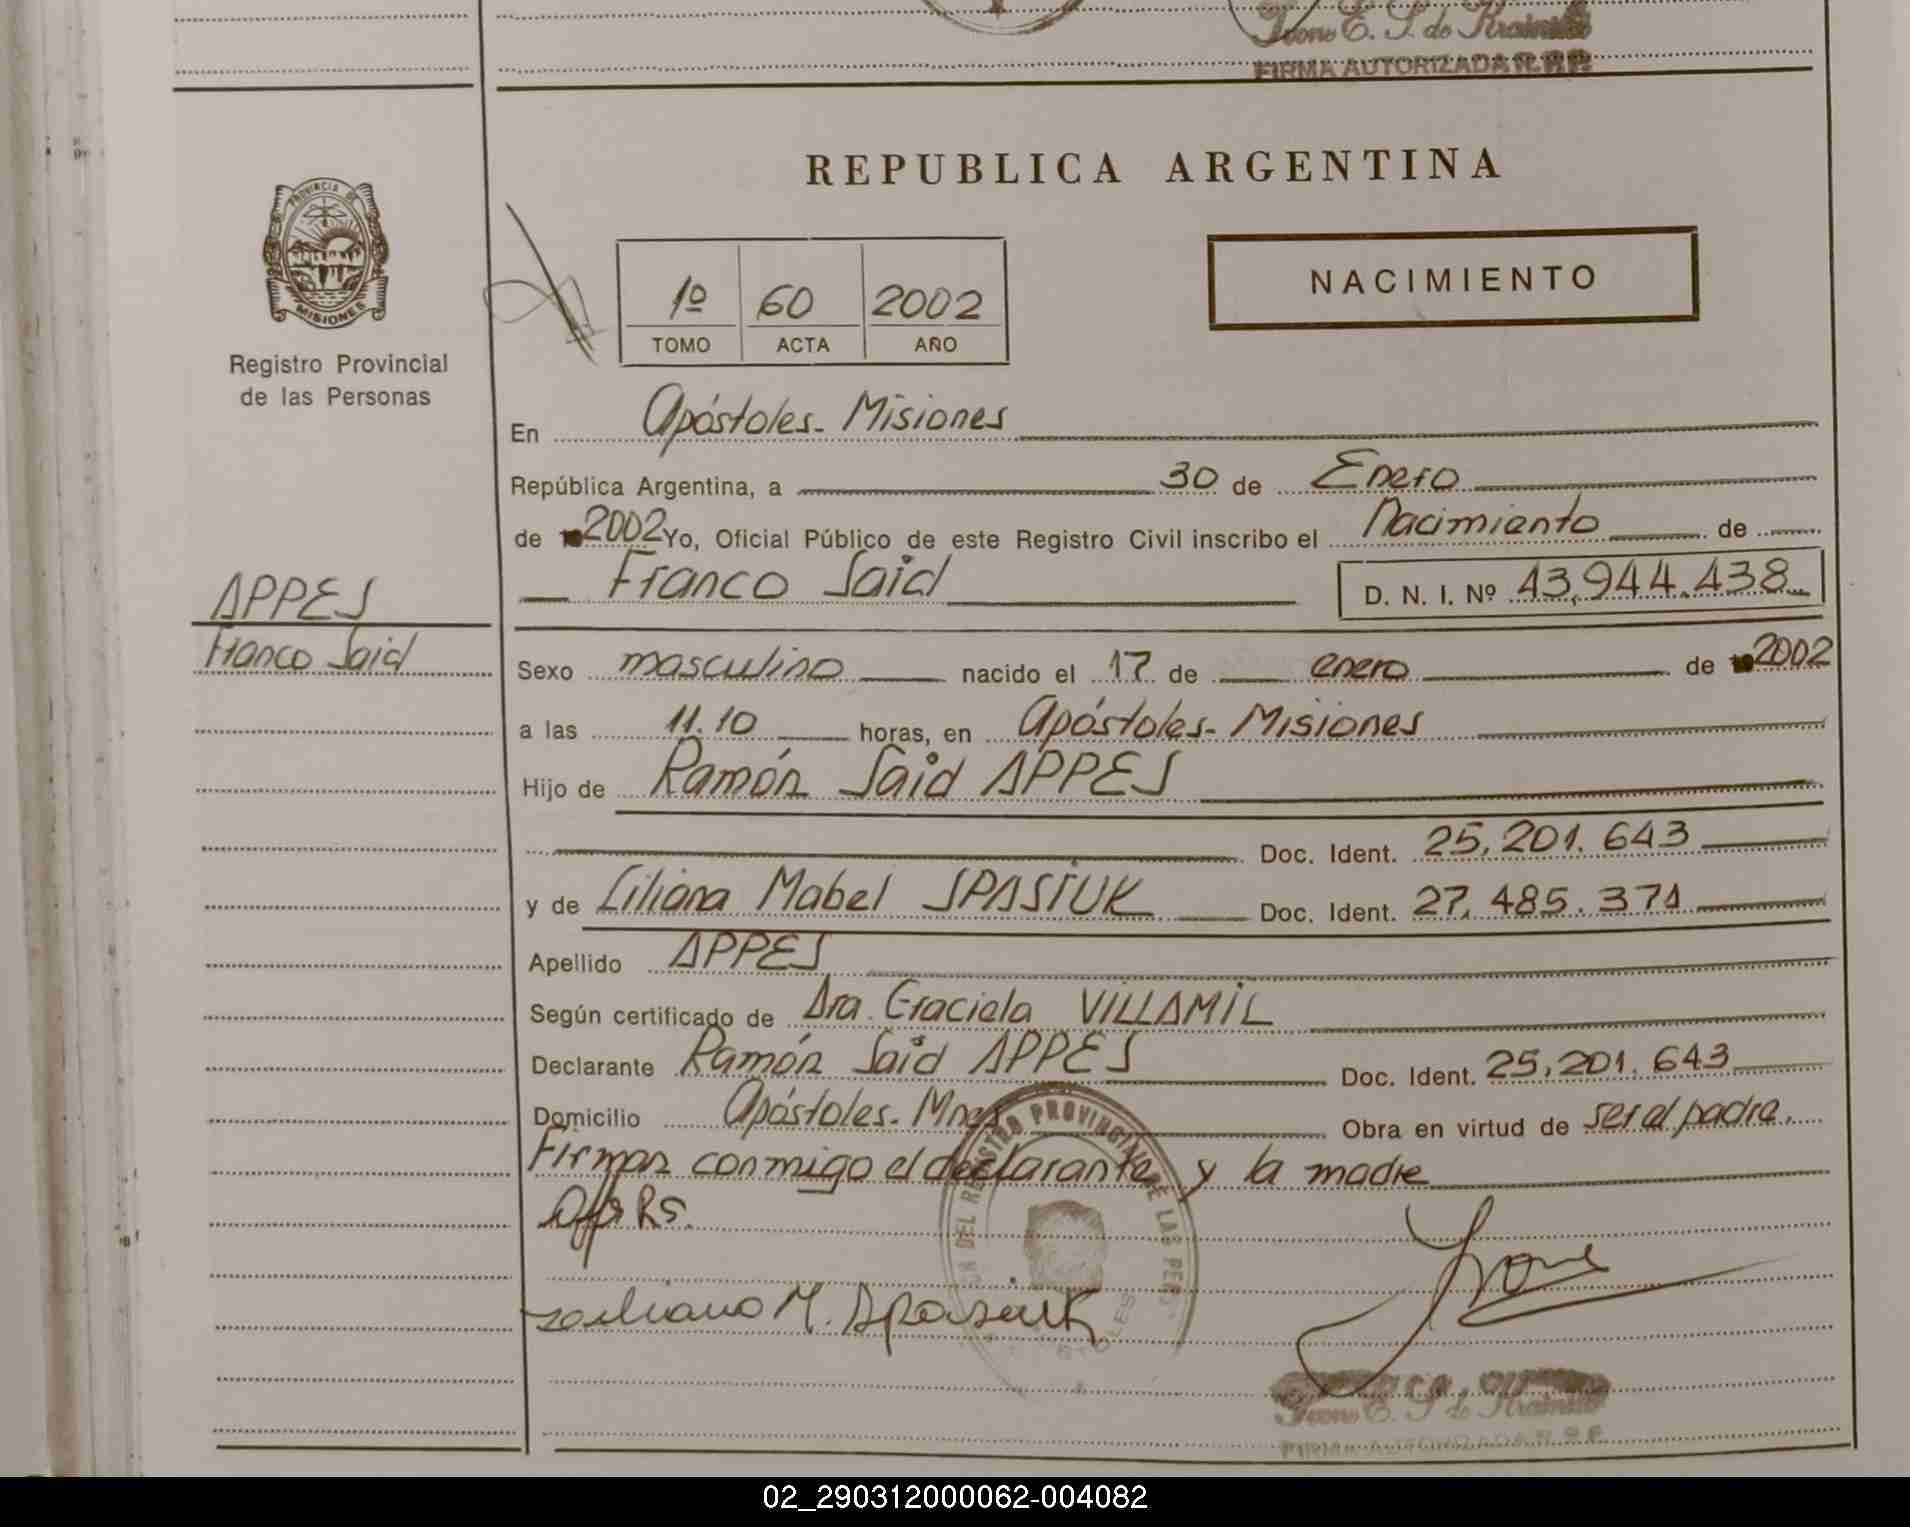 Ivone E. S. de
FIRMA AUTORIZADA R.P.P.
REPUBLICA ARGENTINA
PROVINCIA DE
MISIONES
Registro Provincial
de las Personas
1º 60 2002
TOMO ACTA AÑO
NACIMIENTO
En Apóstoles - Misiones
República Argentina, a 30 de Enero
de 2002 Yo, Oficial Público de este Registro Civil inscribo el Nacimiento de
Franco Said D. N. I. Nº 43,944.438
APPES
Franco Said
Sexo masculino nacido el 17 de enero de 2002
a las 11.10 horas, en Apóstoles - Misiones
Hijo de Ramón Said APPES
Doc. Ident. 25,201.643
y de Liliana Mabel SPASIUK Doc. Ident. 27,485.371
Apellido APPES
Según certificado de Dra. Graciela VILLAMIL
Declarante Ramón Said APPES Doc. Ident. 25,201.643
Domicilio Apóstoles - Mnes Obra en virtud de ser el padre.
Firman conmigo el declarante y la madre
DEL REGISTRO PROVINCIAL DE LAS PERS.
Liliana M. Spasiuk
Ivone
Ivone E. S. de
FIRMA AUTORIZADA R.P.P.
02_290312000062-004082